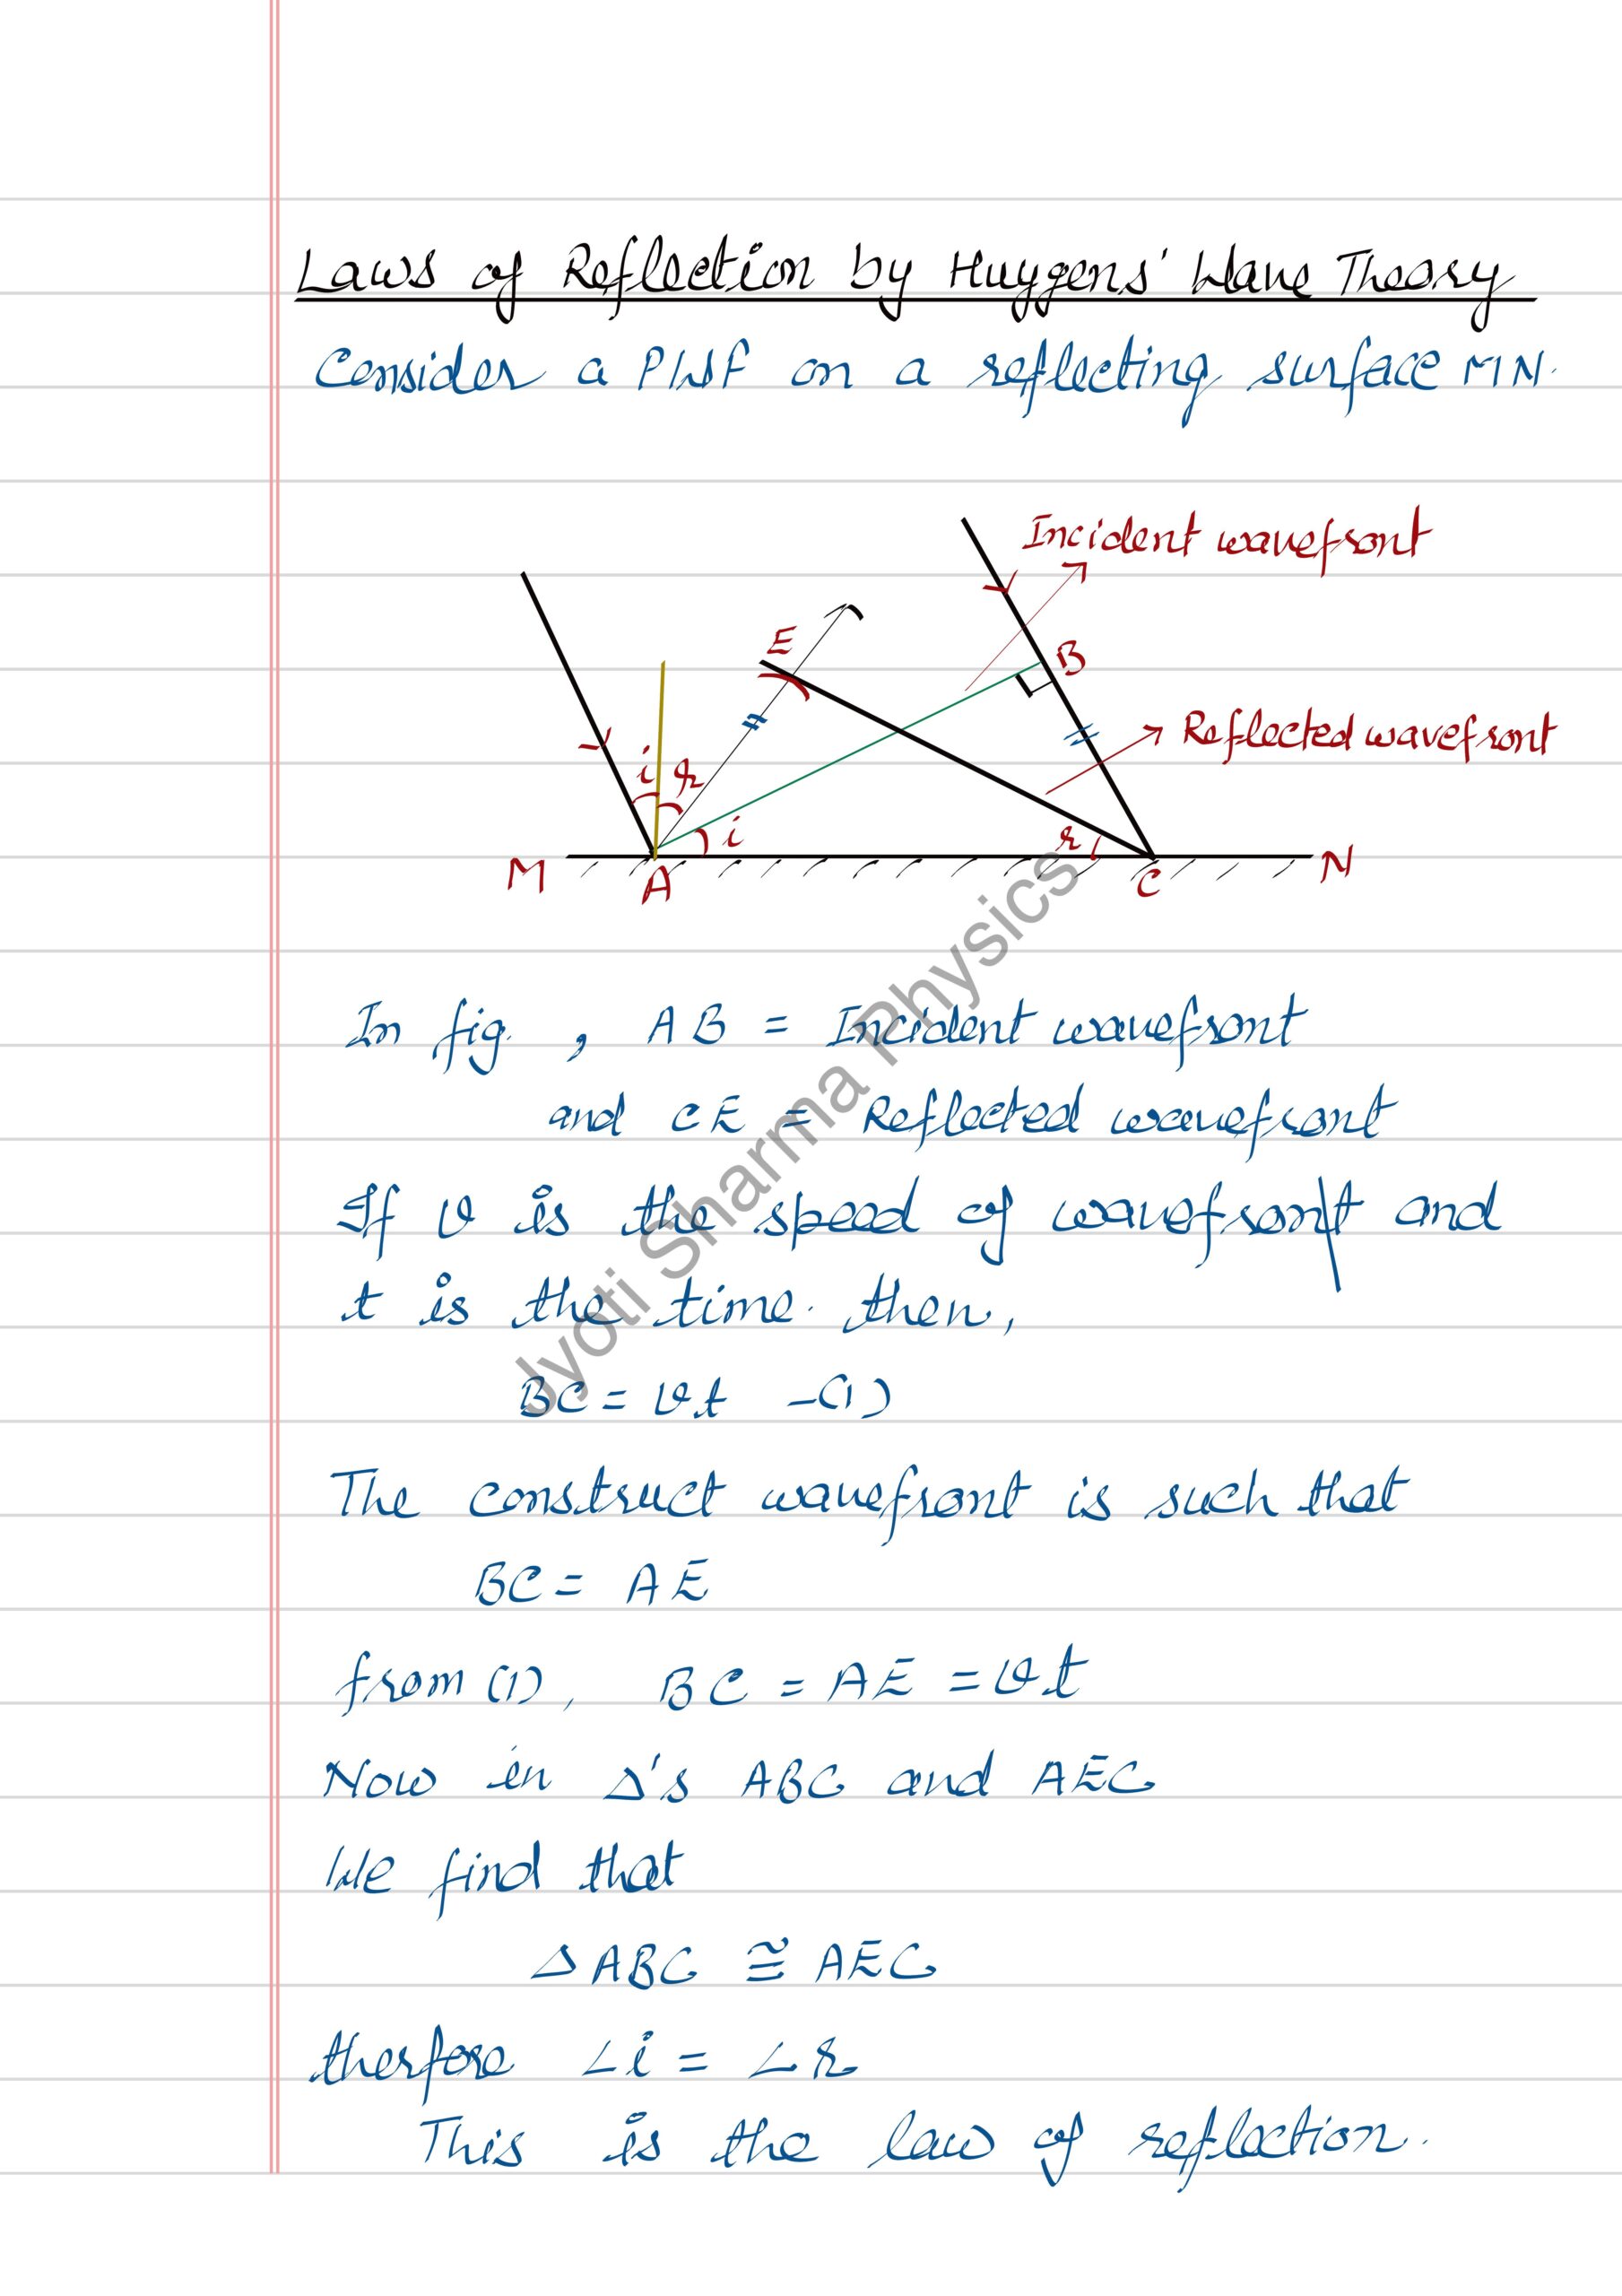 Laws of Reflection by Huygens' Wave Theory
Consider a PWF on a reflecting surface MN.
Incident wavefront
E
B
Reflected wavefront
i r
i
r
M A C N
In fig. , AB = Incident wavefront
and CE = Reflected wavefront
If v is the speed of wavefront and
t is the time. then,
BC = vt -(1)
The construct wavefront is such that
BC = AE
from (1), BC = AE = vt
Now in Δ's ABC and AEC
We find that
Δ ABC ≅ AEC
therfore ∠i = ∠r
This is the law of reflection.
Jyoti Sharma Physics